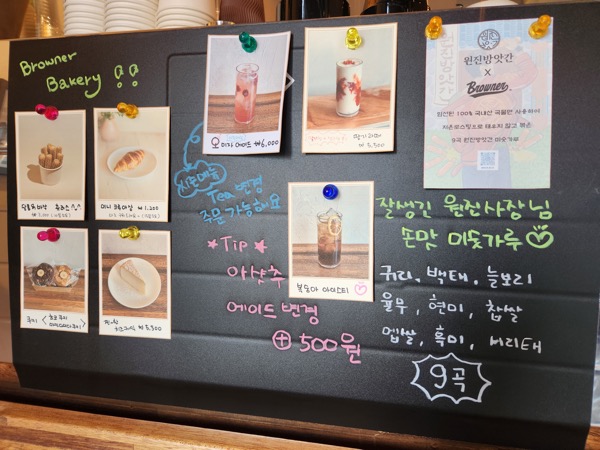 Browner
Bakery
오미자 에이드 ₩6,000
딸기라떼
₩5,500
원진방앗간
X
Browner.
엄선한 100% 국내산 곡물만 사용하여
저온로스팅으로 태우지 않고 볶은
9곡 원진방앗간 미숫가루
미니 크로아상 ₩1,200
쿠키
₩5,500
신메뉴
Tea 변경
주문 가능해요
복숭아 아이스티
* Tip *
아샷추
에이드 변경
+ 500원
잘생긴 원진사장님
손맛 미숫가루
귀리, 백태, 늘보리
율무, 현미, 찹쌀
멥쌀, 흑미, 서리태
9곡